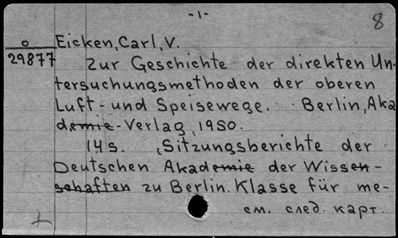 -1-
8
o
29877
Eicken, Carl, V.
Zur Geschichte der direkten Un-
tersuchungsmethoden der oberen
Luft- und Speisewege. Berlin, Aka
demie-Verlag, 1950.
14s. (Sitzungsberichte der
Deutschen Akademie der Wissen-
schaften zu Berlin. Klasse für me-
см. след. карт.